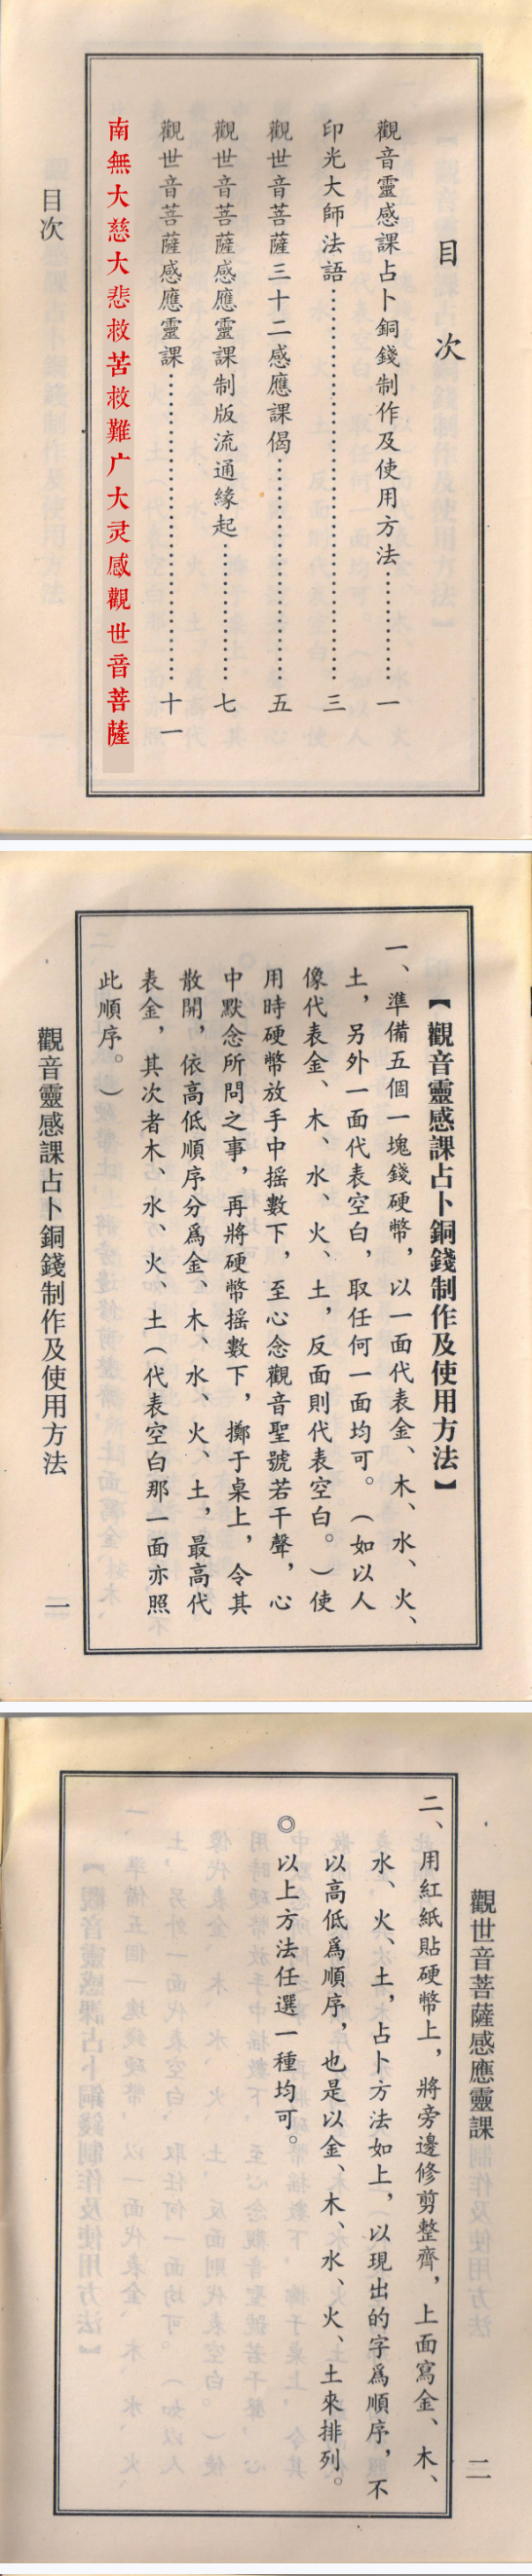 目次
觀音靈感課占卜銅錢制作及使用方法…………一
印光大師法語…………三
觀世音菩薩三十二感應課偈…………五
觀世音菩薩感應靈課制版流通緣起…………七
觀世音菩薩感應靈課…………十一
南無大慈大悲救苦救難广大灵感觀世音菩薩
目次
【觀音靈感課占卜銅錢制作及使用方法】
一、準備五個一塊錢硬幣，以一面代表金、木、水、火、
土，另外一面代表空白，取任何一面均可。（如以人
像代表金、木、水、火、土，反面則代表空白。）使
用時硬幣放手中搖數下，至心念觀音聖號若干聲，心
中默念所問之事，再將硬幣搖數下，擲于桌上，令其
散開，依高低順序分爲金、木、水、火、土，最高代
表金，其次者木、水、火、土（代表空白那一面亦照
此順序。）
觀音靈感課占卜銅錢制作及使用方法
一
觀世音菩薩感應靈課
二
二、用紅紙貼硬幣上，將旁邊修剪整齊，上面寫金、木、
水、火、土，占卜方法如上，以現出的字爲順序，不
以高低爲順序，也是以金、木、水、火、土來排列。
◎以上方法任選一種均可。